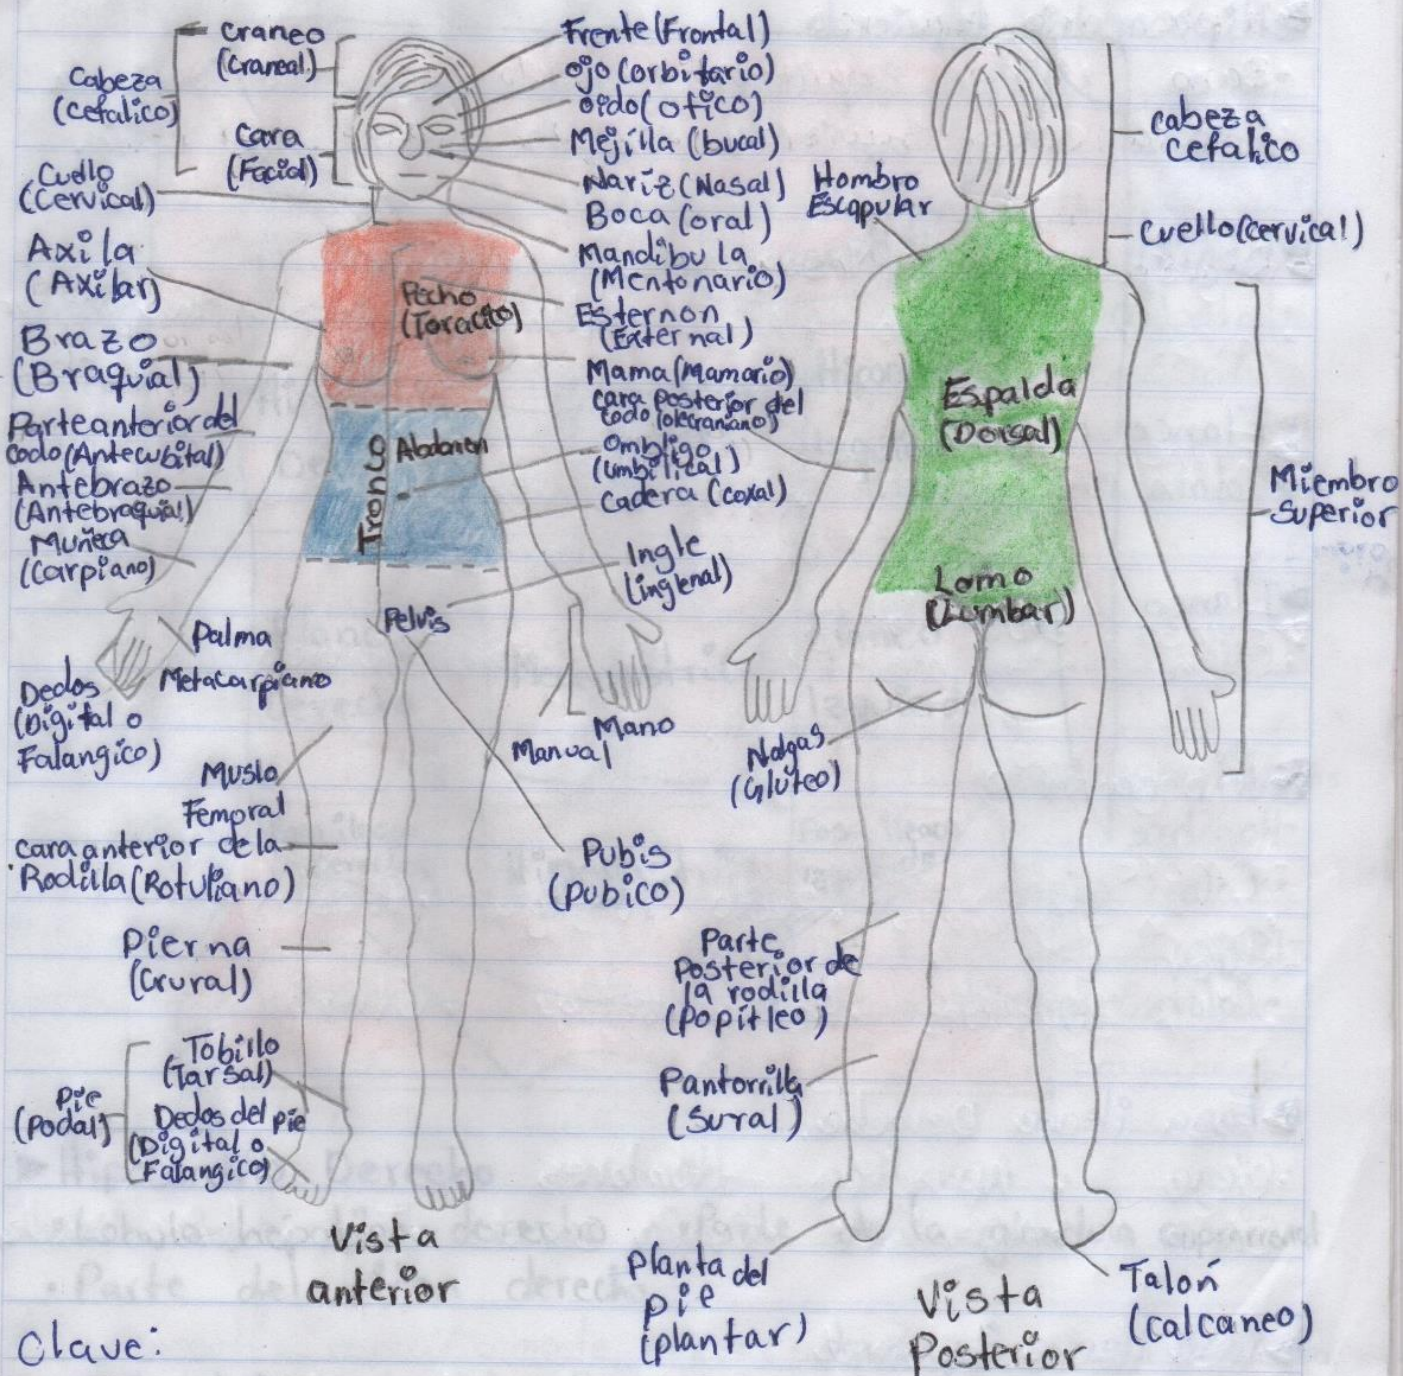 Craneo
(Craneal)
Cabeza
(Cefalico)
Cara
(Facial)
Cuello
(Cervical)
Axila
(Axilar)
Brazo
(Braquial)
Parte anterior del
codo (Antecubital)
Antebrazo
(Antebraquial)
Muñeca
(Carpiano)
Palma
Metacarpiano
Dedos
(Digital o
Falangico)
Muslo
Femoral
cara anterior de la
Rodilla (Rotuliano)
Pierna
(Crural)
Tobillo
(Tarsal)
Pie
(Podal)
Dedos del pie
(Digital o
Falangico)
Frente (Frontal)
ojo (orbitario)
oido (otico)
Mejilla (bucal)
Nariz (Nasal)
Boca (oral)
Mandibula
(Mentonario)
Esternon
(External)
Mama (Mamario)
cara posterior del
codo (olecraniano)
ombligo
(umbilical)
cadera (coxal)
Ingle
(inglenal)
Pecho
(Toracico)
Tronco
Abdomen
Pelvis
Mano
Manual
Pubis
(Pubico)
Vista
anterior
Hombro
Escapular
cabeza
cefalico
Cuello (cervical)
Espalda
(Dorsal)
Miembro
Superior
Lomo
(Lumbar)
Nalgas
(Gluteo)
Parte
Posterior de
la rodilla
(Popitleo)
Pantorrilla
(Sural)
Planta del
pie
(plantar)
Talon
(calcaneo)
Vista
Posterior
Clave: